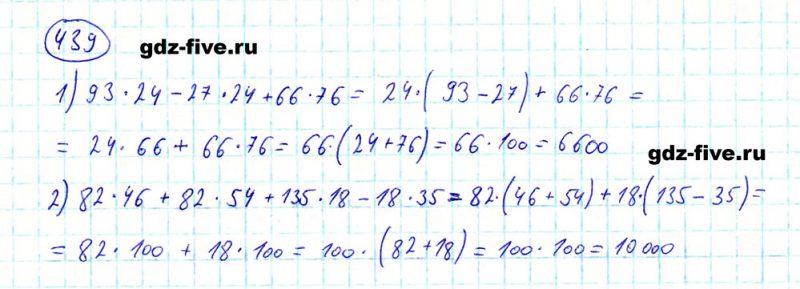 439
gdz-five.ru
1) 93·24-27·24+66·76= 24·(93-27)+66·76=
= 24·66+ 66·76= 66·(24+76)=66·100=6600
gdz-five.ru
2) 82·46+82·54+135·18-18·35=82·(46+54)+18·(135-35)=
= 82·100 + 18·100= 100·(82+18)=100·100=10000